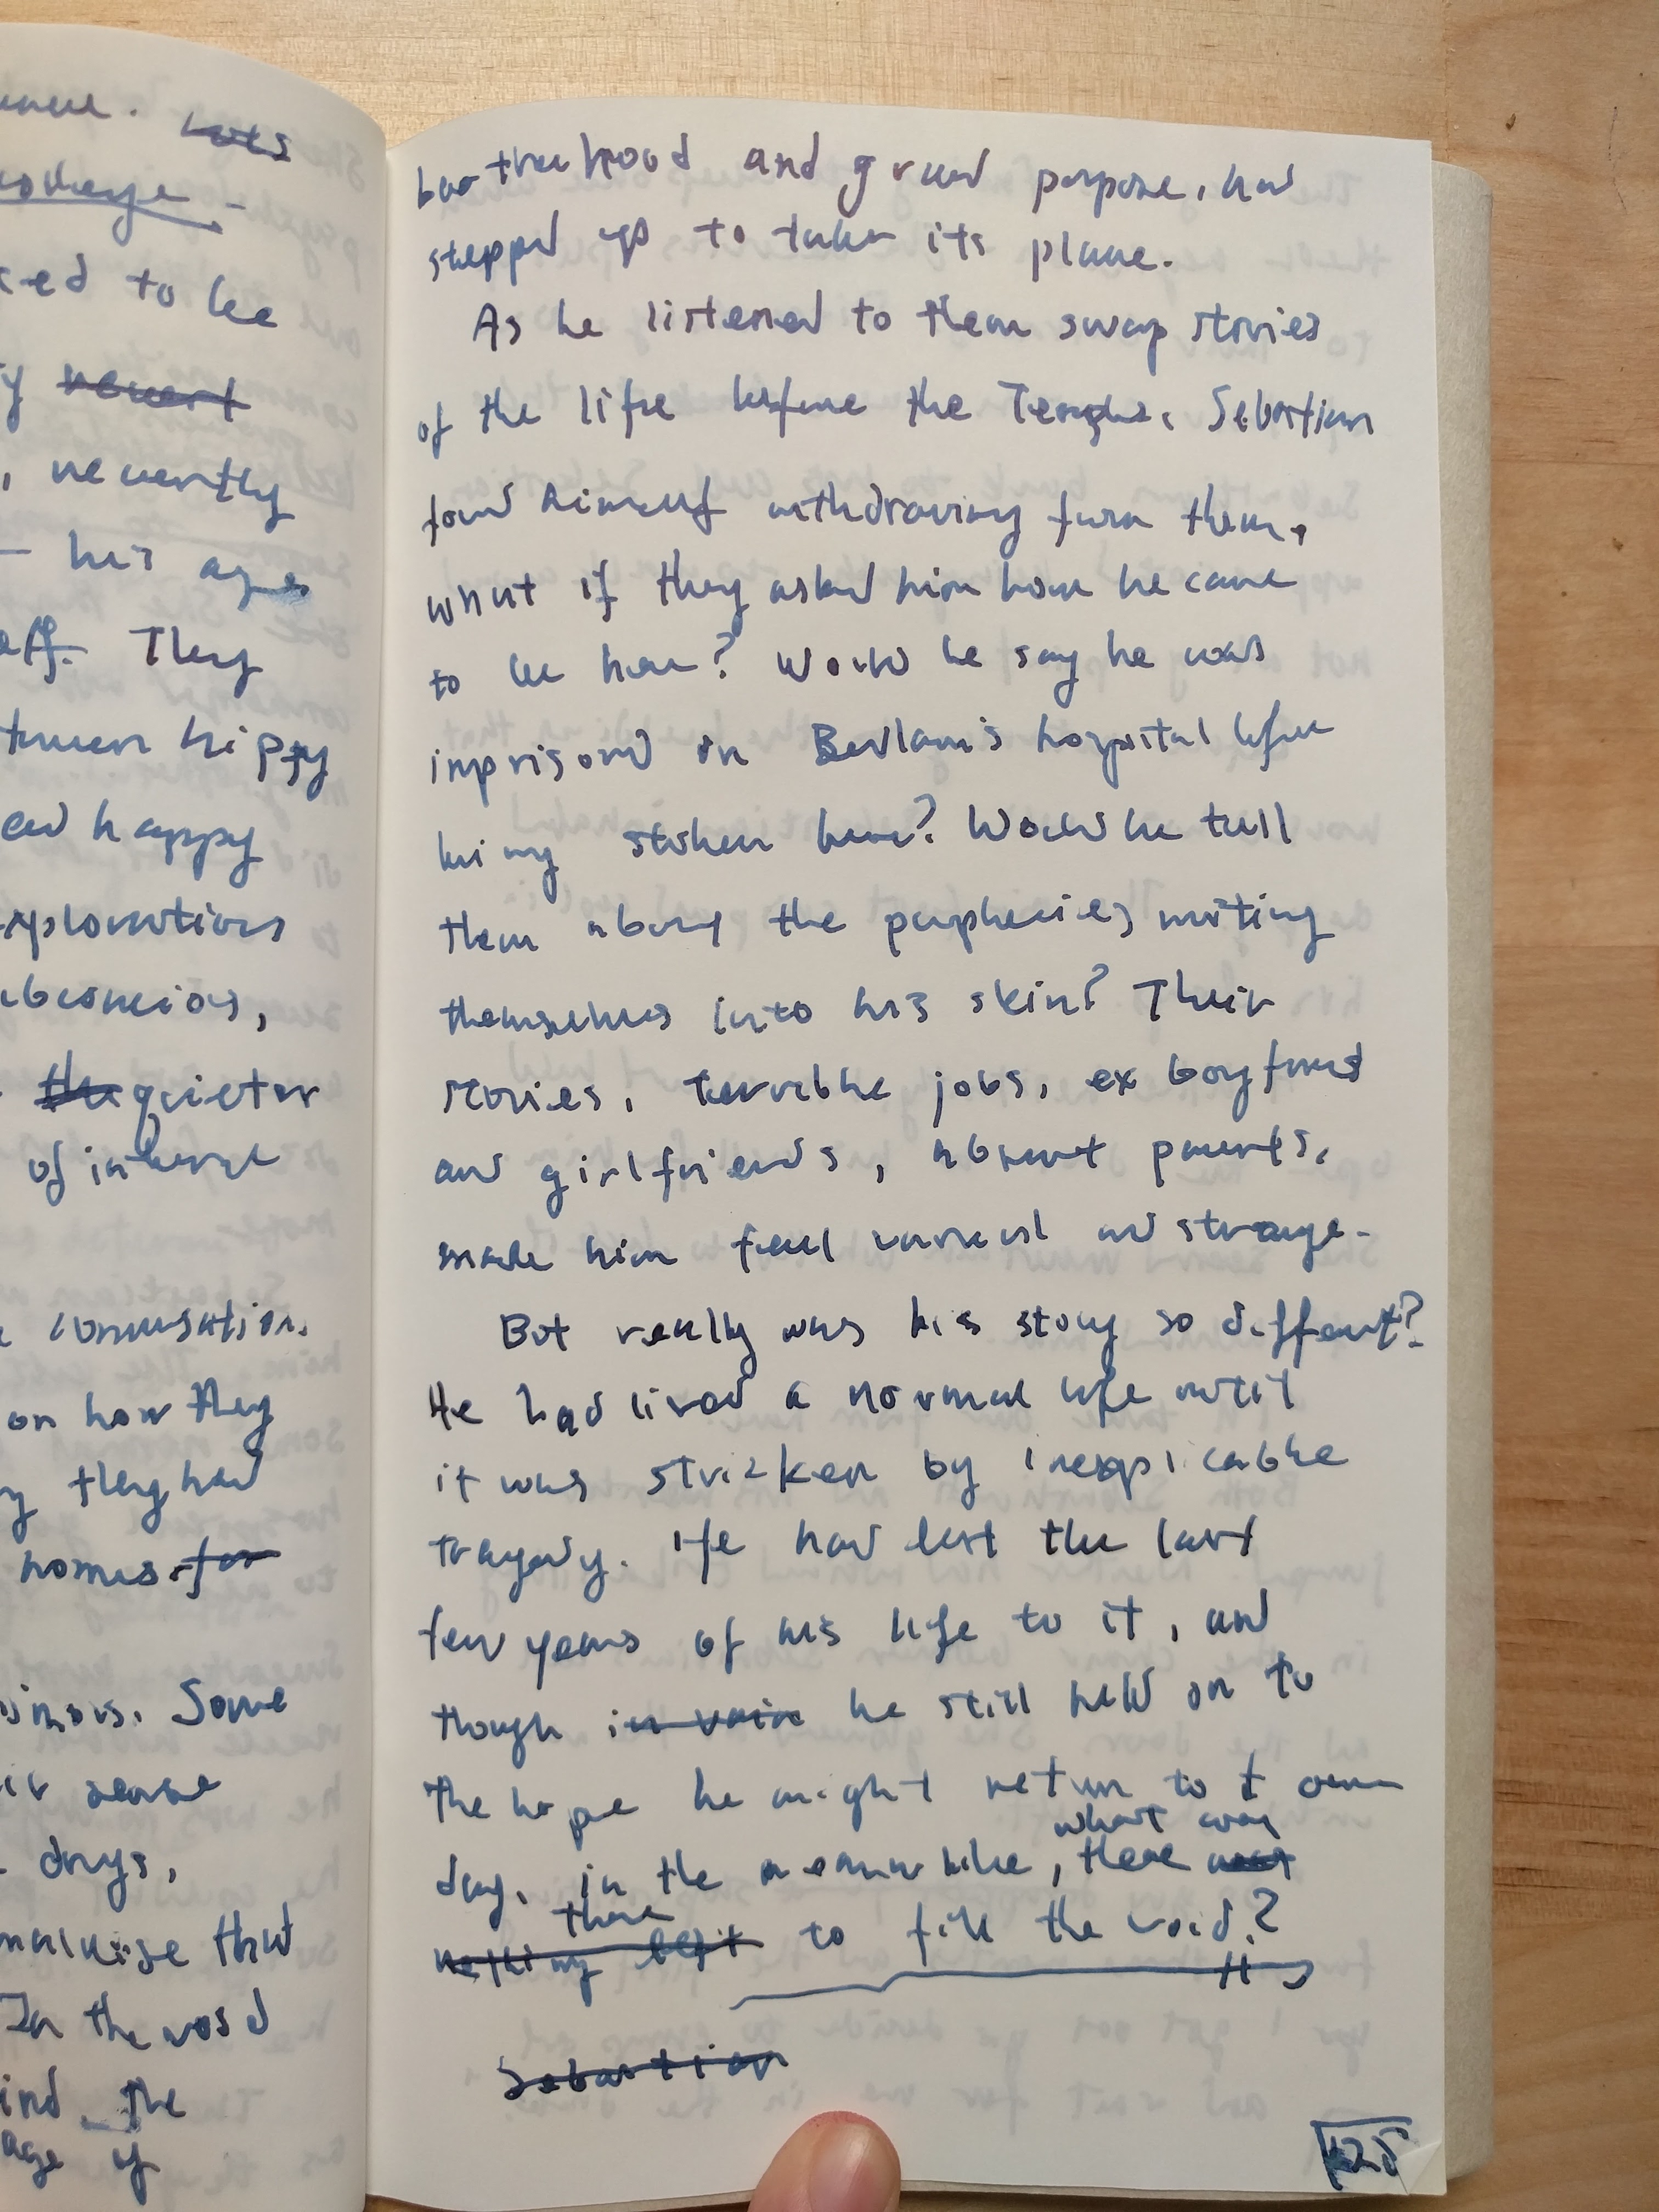 ced to be
recently
his age
They
hippy
happy
quieter
of interest
conversation.
on how they
they had
homes for
Some
sense
drugs,
that
In the void
the
and purpose, had
stepped up to take its place.
As he listened to them swap stories
of the life before the Temple, Sebastian
found himself withdrawing from them,
what if they asked him how he came
to be here? Would he say he was
imprisoned in Bedlam's hospital before
being stolen here? Would he tell
them about the prophecies writing
themselves into his skin? Their
stories, terrible jobs, ex boyfriends
and girlfriends, absent parents,
made him feel unreal and strange.
But really was his story so different?
He had lived a normal life until
it was stricken by inexplicable
tragedy. He had lost the last
few years of his life to it, and
though in vain he still held on to
the hope he might return to it one
what was
day, in the meanwhile, there was
there
nothing left to fill the void?
Sebastian
125